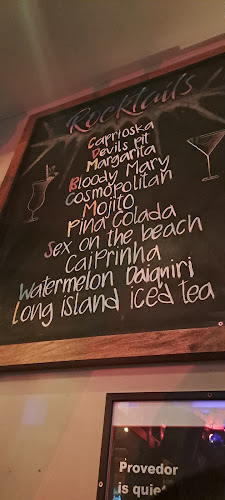 Rocktails
Caprioska
Devils pit
Margarita
Bloody Mary
Cosmopolitan
Mojito
Pina Colada
Sex on the beach
Caiprinha
Watermelon Daiquiri
Long island iced tea
Provedor
is quie